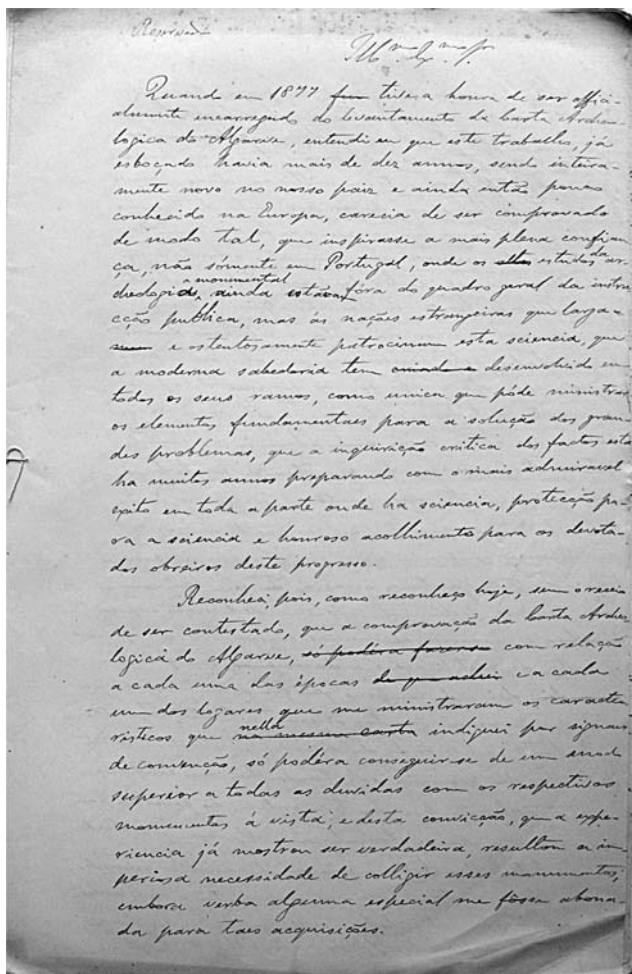 Reservado
Ill.mo Ex.mo Sr.
Quando em 1877 fui tive a honra de ser offici-
almente encarregado do levantamento da Carta Archeo-
logica do Algarve, entendi eu que este trabalho, já
esboçado havia mais de dez annos, sendo inteira-
mente novo no nosso paiz e ainda então pouco
conhecido na Europa, carecia de ser comprovado
de modo tal, que inspirasse a mais plena confian-
ça, não sómente em Portugal, onde os estudos da ar-
a monumental
cheologia, ainda estavam fóra do quadro geral da instru-
cção publica, mas ás nações estrangeiras que larga-
e ostentosamente patrocinam esta sciencia, que
a moderna sabedoria tem desenvolvido em
todos os seus ramos, como unica que póde ministrar
os elementos fundamentaes para a solução dos gran-
des problemas, que a inquirição critica dos factos está
ha muitos annos preparando com o mais admiravel
exito em toda a parte onde ha sciencia, protecção pa-
ra a sciencia e honroso acolhimento para os devota-
dos obreiros deste progresso.
Reconheci, pois, como reconheço hoje, sem o receio
de ser contestado, que a comprovação da Carta Archeo-
logica do Algarve, só podéra fazerse com relação
a cada uma das épocas e a cada
um dos logares que me ministraram os caracte-
nella
risticos que na mesma carta indiquei por signaes
de convenção, só podéra conseguir-se de um modo
superior a todas as duvidas com os respectivos
monumentos á vista; e desta convicção, que a expe-
riencia já mostrou ser verdadeira, resultou a im-
periosa necessidade de colligir esses monumentos,
embora verba alguma especial me fosse abona-
da para taes acquisições.